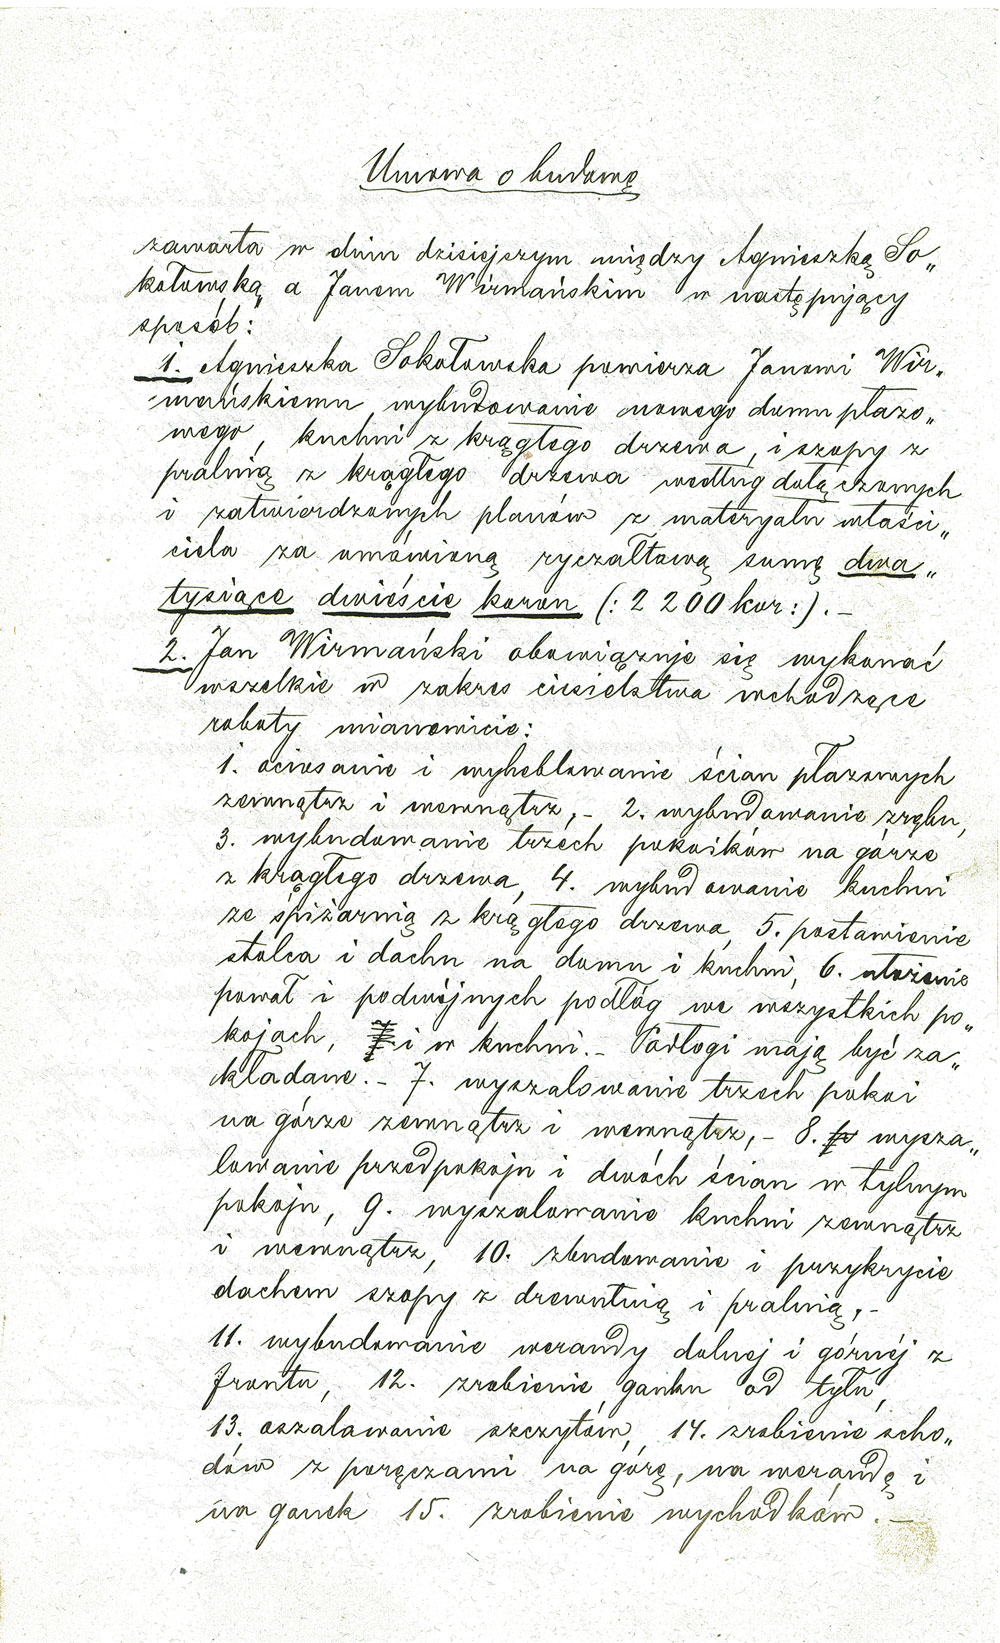 Umowa o budowę
zawarta w dniu dzisiejszym między Agnieszką So„
kołowską, a Janem Wirmańskim w następujący
sposób:
1. Agnieszka Sokołowska powierza Janowi Wir„
mańskiemu wybudowanie nowego domu płazo„
wego, kuchni z krągłego drzewa, i szopy z
pralnią z krągłego drzewa według dołączonych
i zatwierdzonych planów z materyału właści„
ciela za omówioną ryczałtową sumę dwa„
tysiące dwieście koron (: 2 200 kor :). –
2. Jan Wirmański obowiązuje się wykonać
wszelkie w zakres ciesielstwa wchodzące
roboty mianowicie:
1. ociosanie i wyheblowanie ścian płazowych
zewnątrz i wewnątrz, – 2. wybudowanie zrębu,
3. wybudowanie trzech pokoików na górze
z krągłego drzewa, 4. wybudowanie kuchni
ze śpiżarnią z krągłego drzewa, 5. postawienie
stolca i dachu na domu i kuchni, 6. ułożenie
pował i podwójnych podłóg we wszystkich po„
kojach, i w kuchni. – Podłogi mają być za„
kładane. – 7. wyszalowanie trzech pokoi
na górze zewnątrz i wewnątrz, – 8. wysza„
lowanie przedpokoju i dwóch ścian w tylnym
pokoju, 9. wyszalowanie kuchni zewnątrz
i wewnątrz, 10. zbudowanie i przykrycie
dachem szopy z drewutnią i pralnią, –
11. wybudowanie werandy dolnej i górnéj z
frontu, 12. zrobienie ganku od tyłu,
13. oszalawanie szczytów, 14. zrobienie scho„
dów z poręczami na górę, na werandę i
na ganek 15. zrobienie wychodków. –